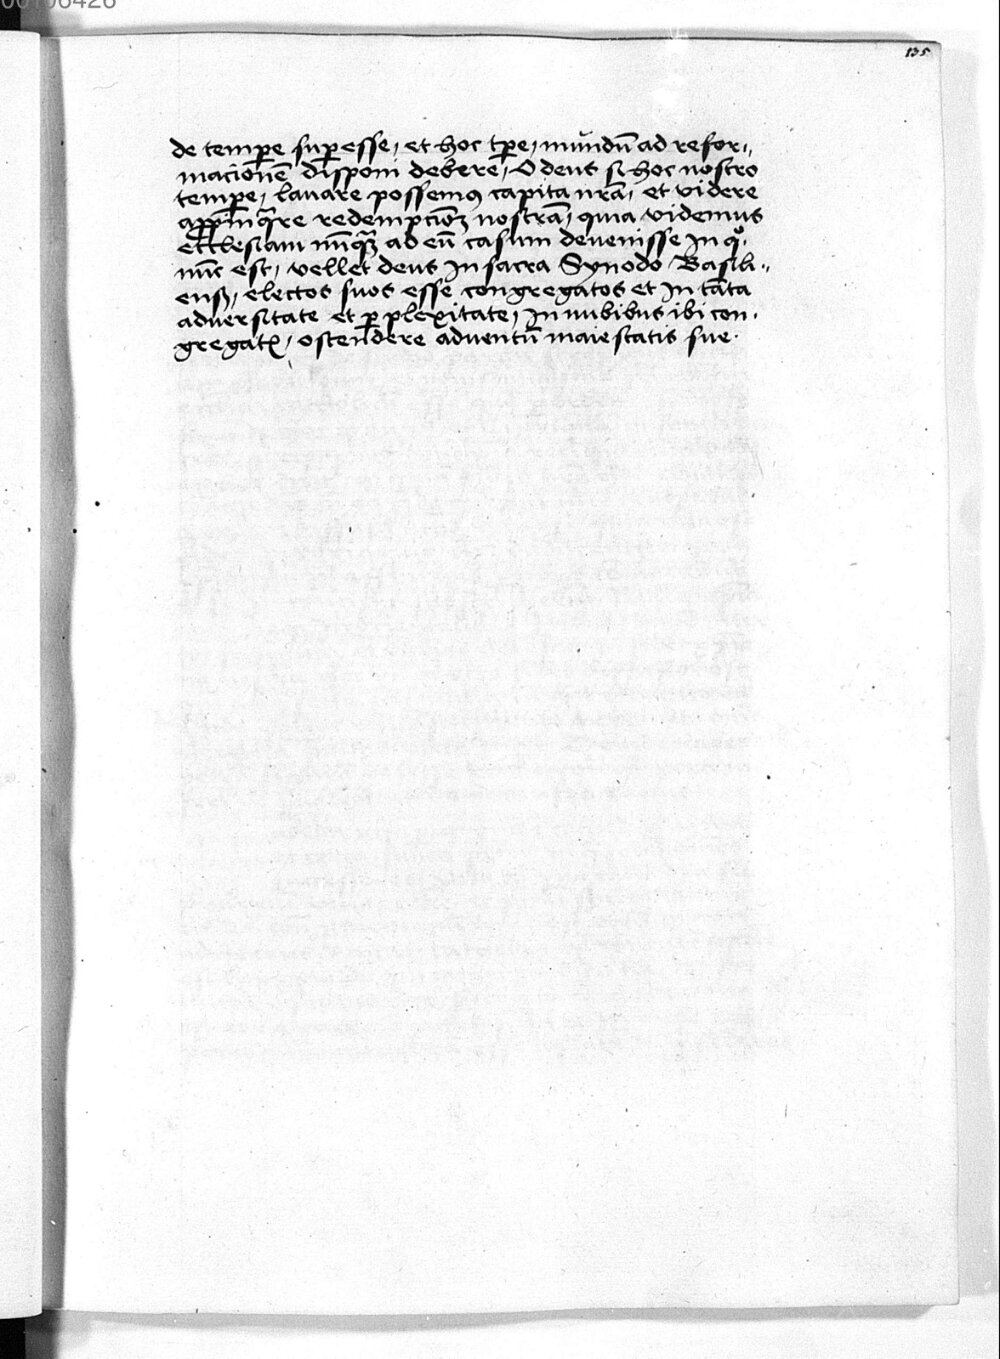 00106426
135
de temp̄e sup̄esse, et hoc tp̄e, mundū ad refor„
macionē disponi debere, O deus si hoc nostro
temp̄e, lauare possemus capita nr̄a, et videre
app̄inq̄re redempcioꝫ nostrā, quia videmus
ecclesiam nūqꝫ ad eū casum deuenisse In qͦ
nūc est, vellet deus In sacra Synodo Basili„
ensꝭ, electos suos esse congregatos et In tāta
aduersitate et ꝑplexitate, In nubibus ibi con„
gregatꝭ, ostendere aduentū maiestatis sue.